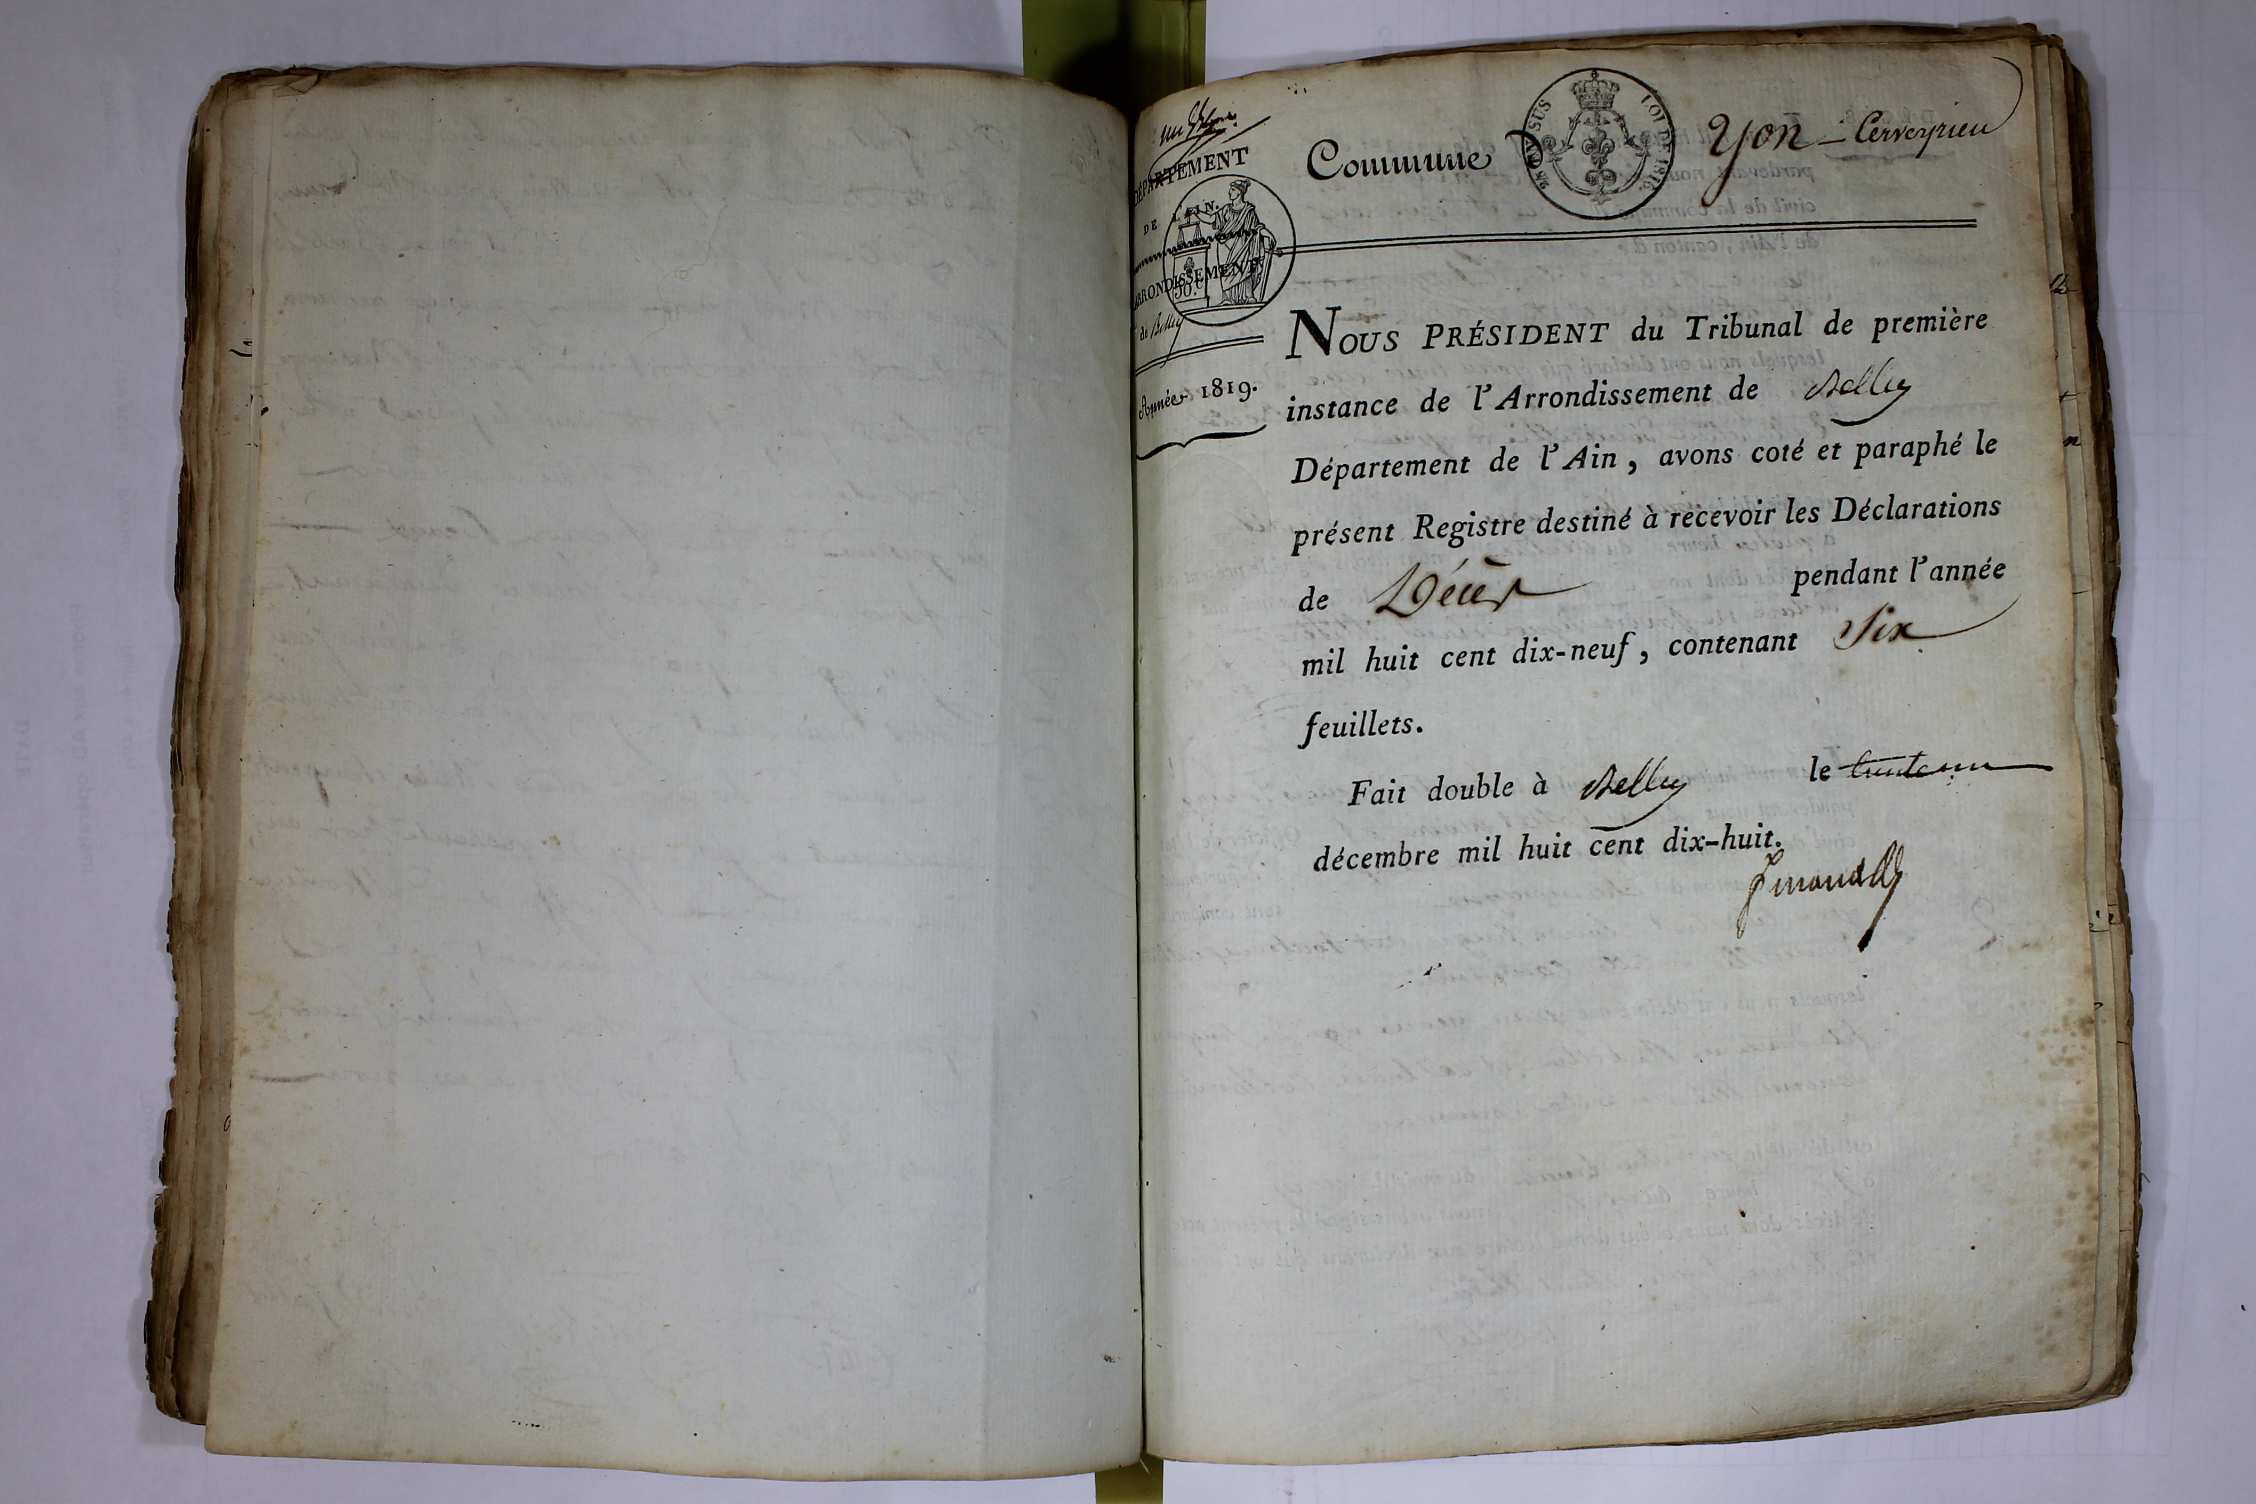 un
DÉPARTEMENT
DE L'AIN.
ARRONDISSEMENT
de Belley
Année 1819.
Commune D Yon - Cerveyrieu
EN SUS
LOI DE 1816.
50.C
NOUS PRÉSIDENT du Tribunal de première
instance de l'Arrondissement de Belley
Département de l'Ain, avons coté et paraphé le
présent Registre destiné à recevoir les Déclarations
de Décès pendant l'année
mil huit cent dix-neuf, contenant Six
feuillets.
Fait double à Belley le trente un
décembre mil huit cent dix-huit.